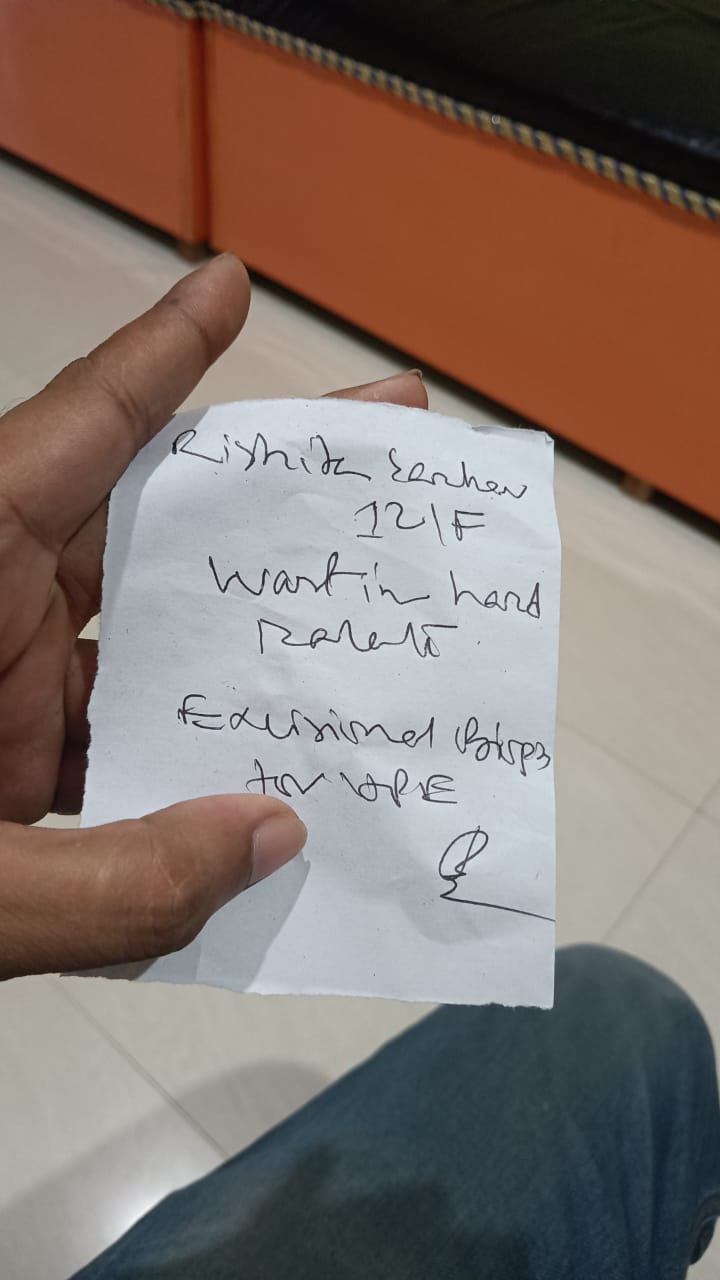 Rishita Sarkar
12/F
Wart in hard
Palate
Excisional Biopsy
for HPE